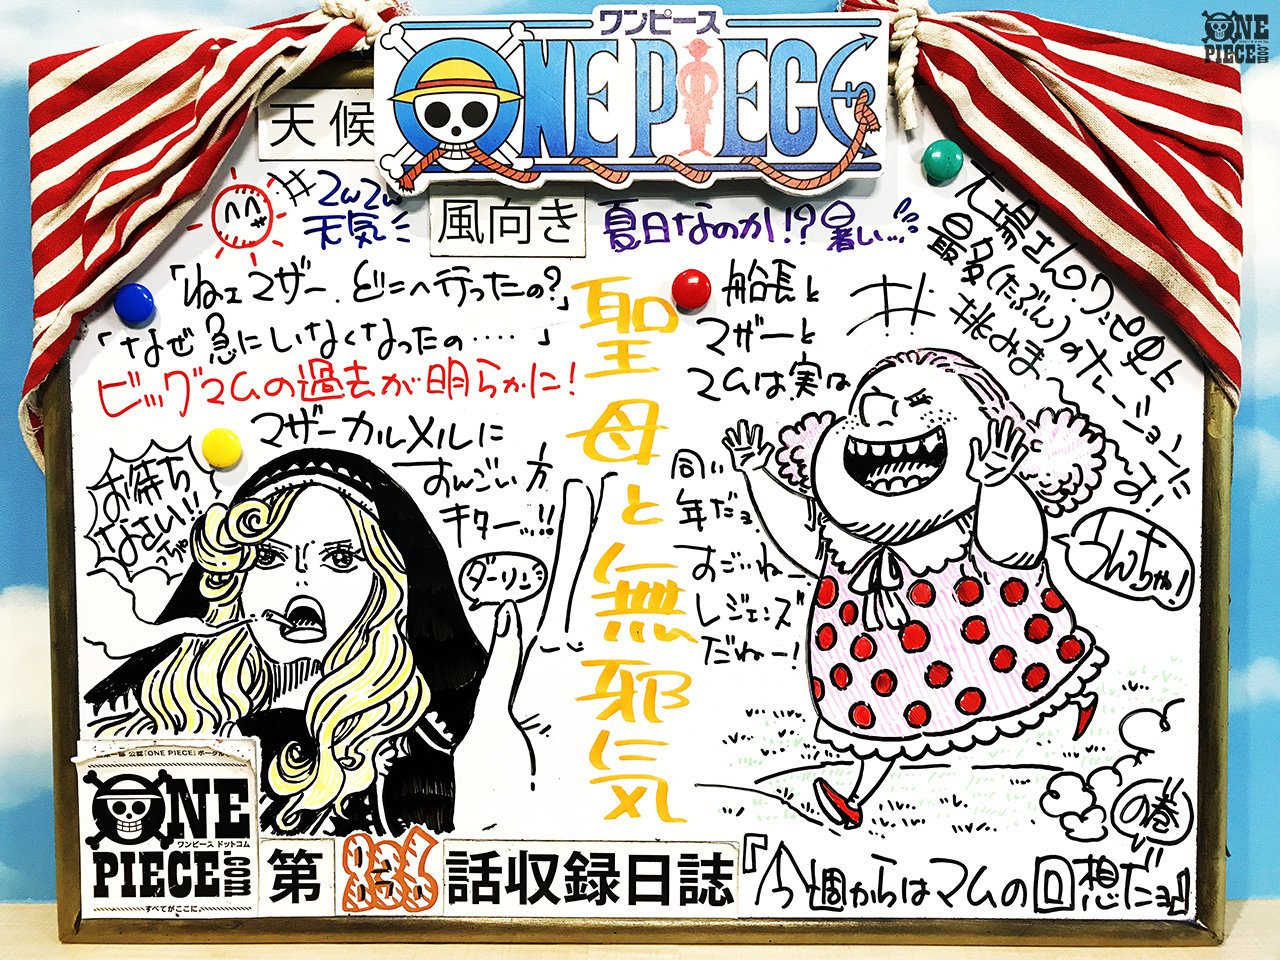 ワンピース
ONE PIECE
ONE PIECE.com
天候
ワクワク天気
風向き
夏日なのか!?暑い…
大場さんワンピ史上
最多(たぶん)のナレーションに
挑みます!
「ねェマザー、どこへ行ったの?」
「なぜ急にいなくなったの‥‥」
ビッグマムの過去が明らかに!
マザーカルメルに
すんごい方
キター…!!
お待ち
なさい!!
ダーリン
聖母と無邪気
船長と
マザーと
マムは実は
同い
年だョ
すごいねー
レジェンズ
だねー!
うんちゃ!
ONE
ワンピース ドットコム
PIECE.com
すべてがここに。
第836話収録日誌
『今週からはマムの回想だョ』
の巻